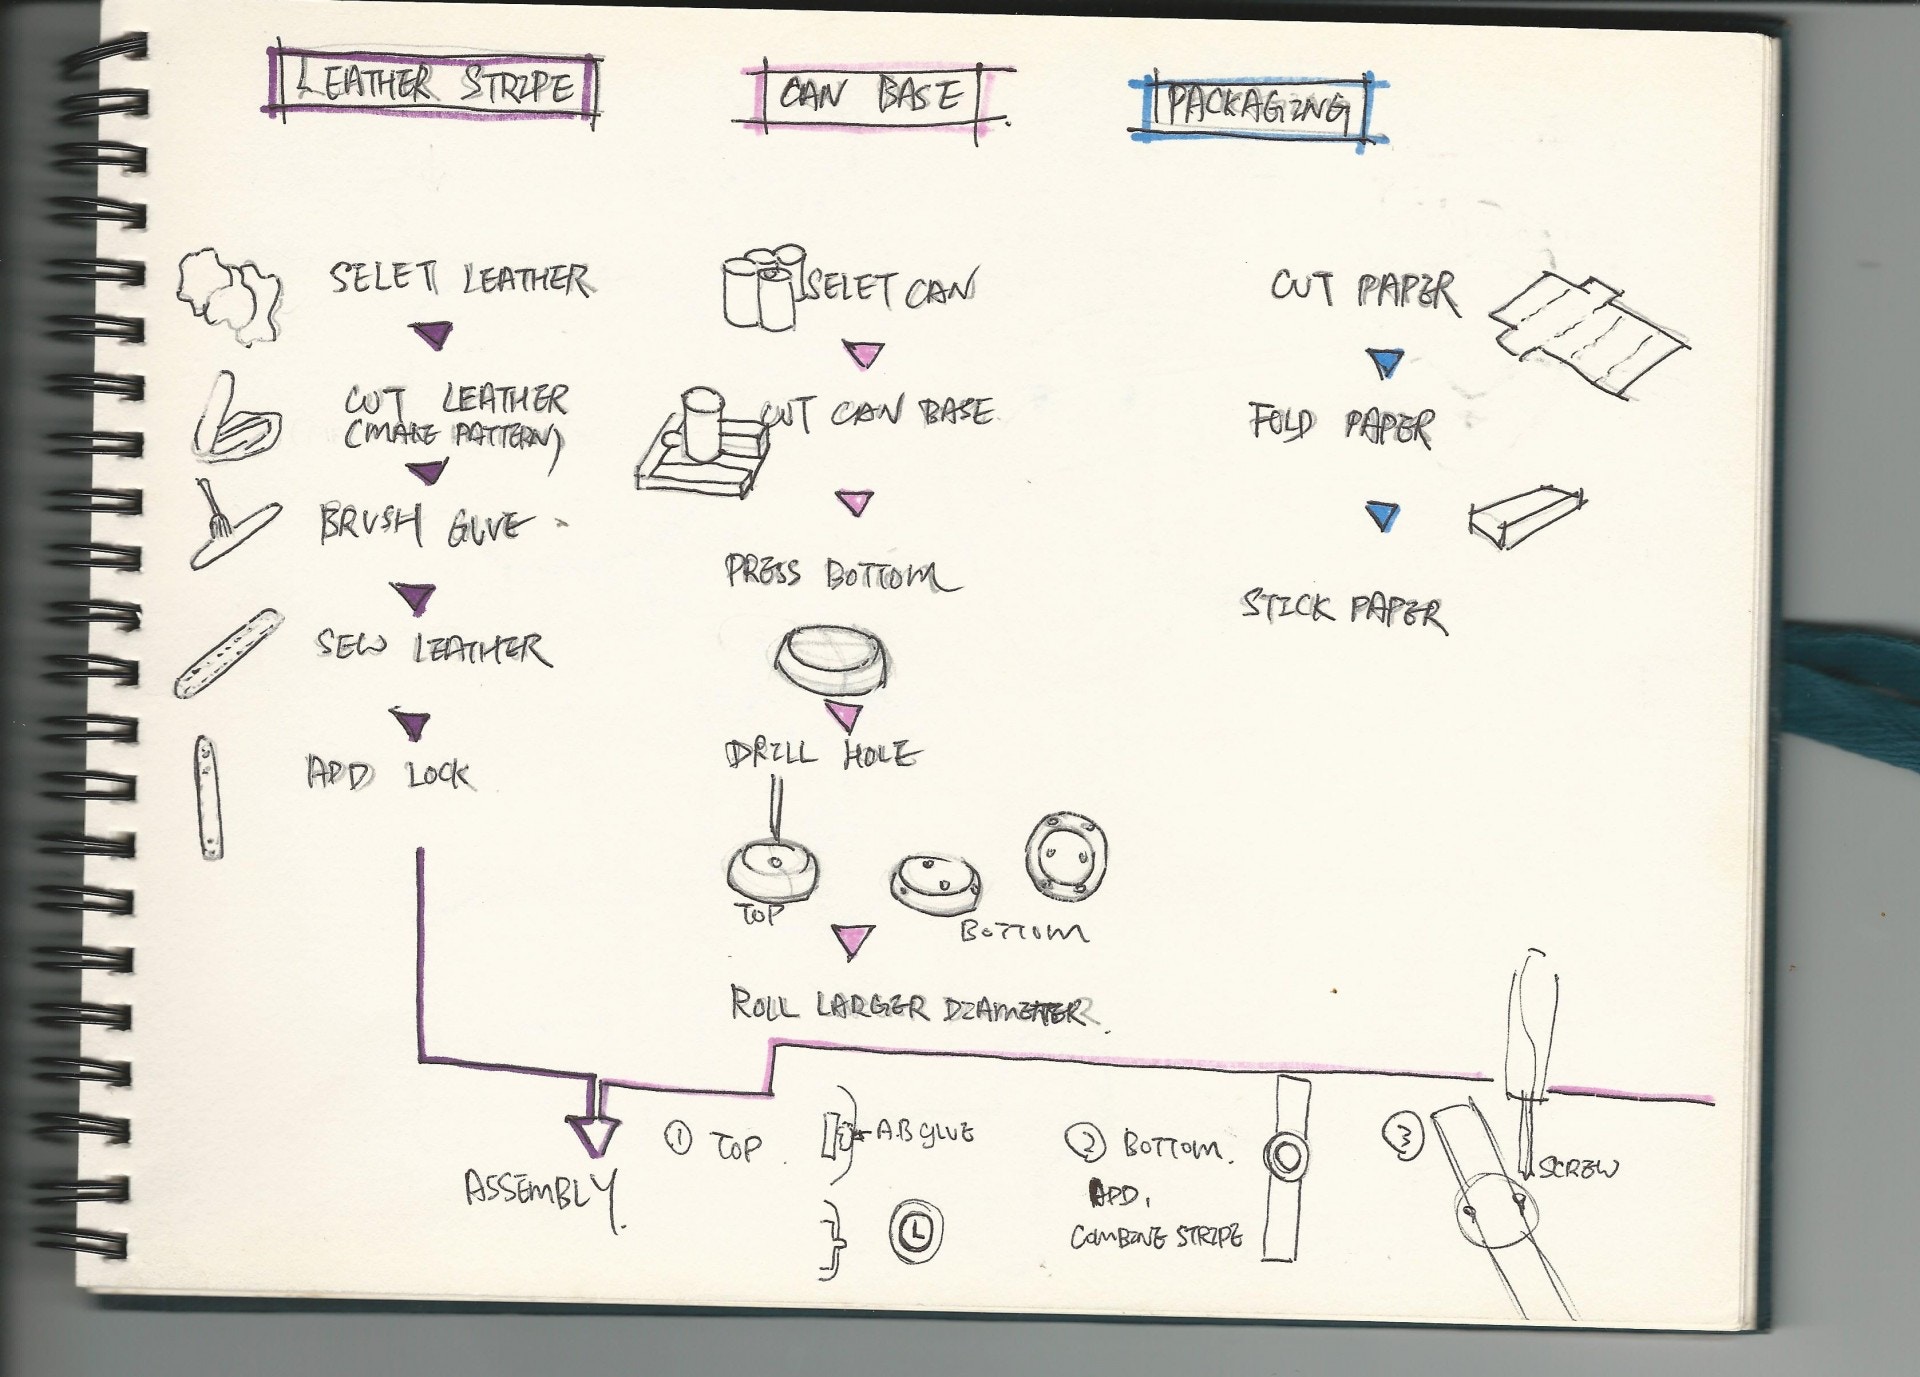 LEATHER STRIPE
SELET LEATHER
CUT LEATHER
(MAKE PATTERN)
BRUSH GLUE
SEW LEATHER
ADD LOCK
CAN BASE
SELET CAN
CUT CAN BASE
PRESS BOTTOM
DRILL HOLE
TOP
BOTTOM
ROLL LARGER DIAMETER.
PACKAGING
CUT PAPER
FOLD PAPER
STICK PAPER
ASSEMBLY.
① TOP
AB GLUE
② BOTTOM.
ADD.
COMBINE STRIPE
③
SCREW